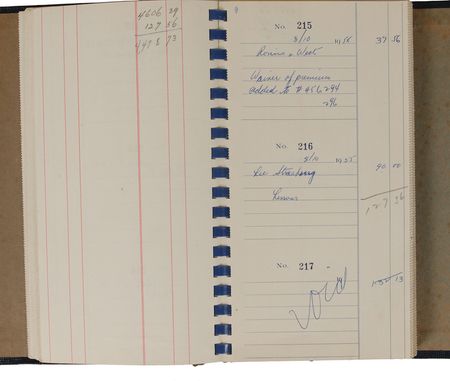 4606 29
127 56
4478 73
No. 215
8/10 1955 37 56
West
Waiver of premium
added to # 456294
296
No. 216
8/10 1955
Lee Strasberg 90 00
Lessons 127 56
No. 217
Void